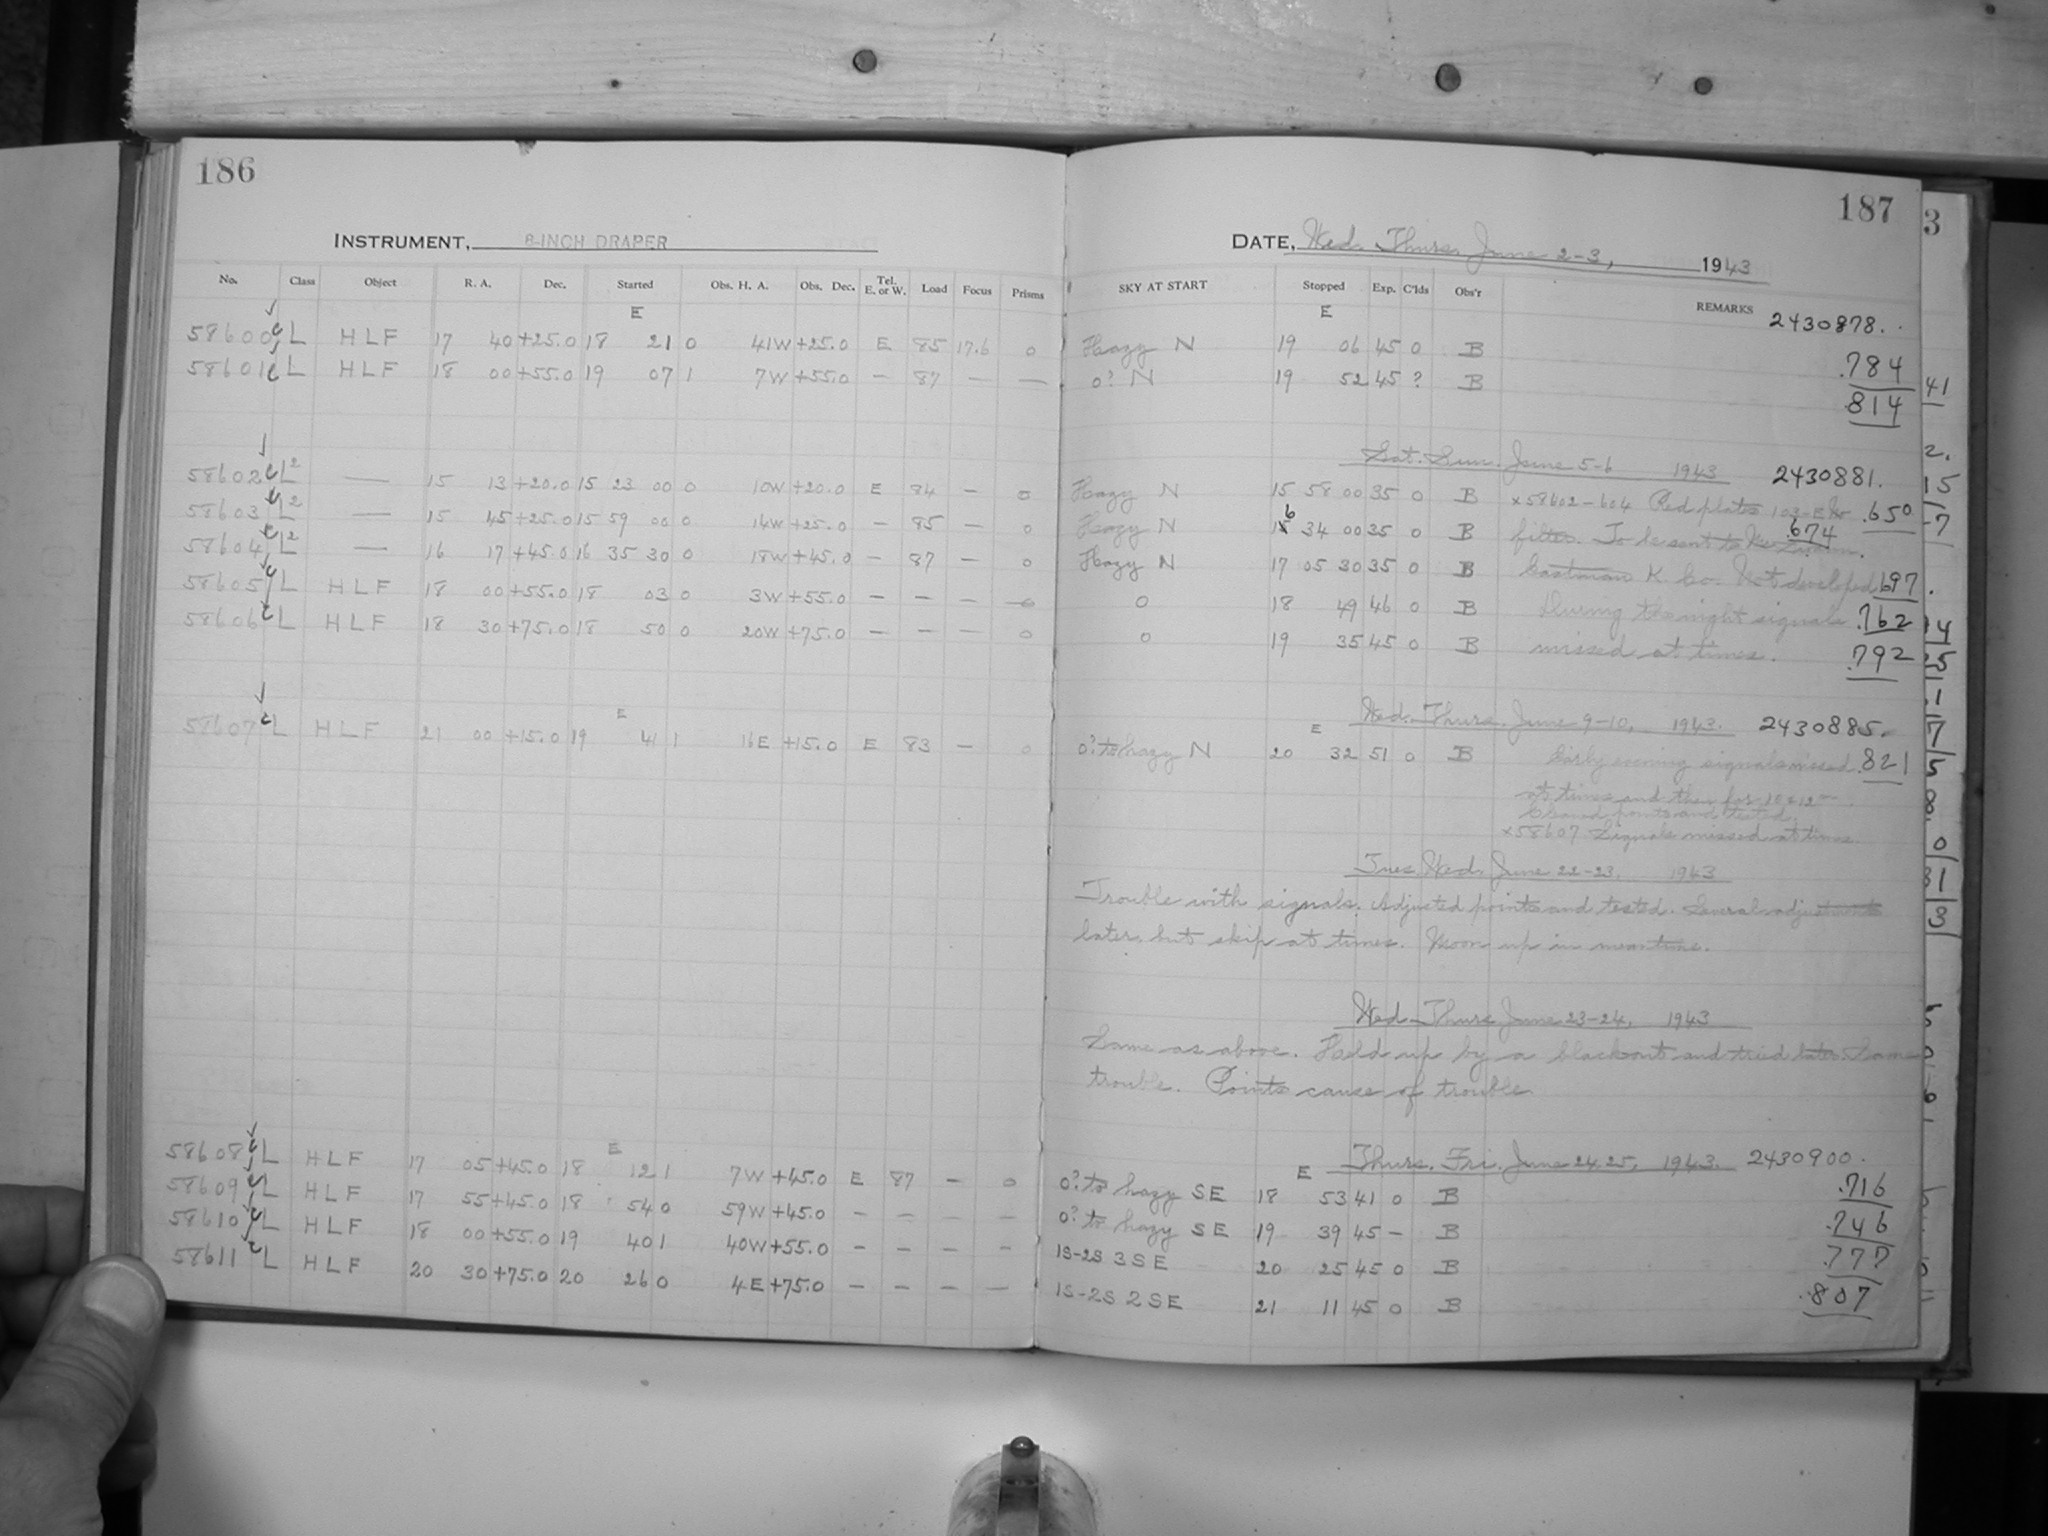 186
INSTRUMENT, 8-INCH DRAPER
No. Class Object R. A. Dec. Started Obs. H. A. Obs. Dec. Tel. E. or W. Load Focus Prisms
E
58600 L HLF 17 40 +25.0 18 21 0 41W +25.0 E 85 17.6 0
58601 L HLF 18 00 +55.0 19 07 1 7W +55.0 — 87 — —
58602 L2 — 15 13 +20.0 15 23 00 0 10W +20.0 E 84 — 0
58603 L2 — 15 45 +25.0 15 59 00 0 14W +25.0 — 85 — 0
58604 L2 — 16 17 +45.0 16 35 30 0 18W +45.0 — 87 — 0
58605 L HLF 18 00 +55.0 18 03 0 3W +55.0 — — — 0
58606 L HLF 18 30 +75.0 18 50 0 20W +75.0 — — — 0
E
58607 L HLF 21 00 +15.0 19 41 1 16E +15.0 E 83 — 0
E
58608 L HLF 17 05 +45.0 18 12 1 7W +45.0 E 87 — 0
58609 L HLF 17 55 +45.0 18 54 0 59W +45.0 — — — —
58610 L HLF 18 00 +55.0 19 40 1 40W +55.0 — — — —
58611 L HLF 20 30 +75.0 20 26 0 4E +75.0 — — — —
187
DATE, Wed. Thurs. June 2-3, 1943
SKY AT START Stopped Exp. C'lds Obs'r REMARKS
E 2430878.
Hazy N 19 06 45 0 B .784
0? N 19 52 45 ? B .814
Sat. Sun. June 5-6 1943 2430881.
Hazy N 15 58 00 35 0 B x58602-604 Red plates 103-E .650
Hazy N 16 34 00 35 0 B filter. To be sent to .674
Hazy N 17 05 30 35 0 B Eastman K. Co. Not developed .697
0 18 49 46 0 B During the night signals .762
0 19 35 45 0 B missed at times. .792
Wed. Thurs. June 9-10, 1943. 2430885.
E
0? to hazy N 20 32 51 0 B Early evening signals missed .821
at times and then for 10
Cleaned points and tested.
x58607 Signals missed at times
Tues. Wed. June 22-23, 1943
Trouble with signals. Adjusted points and tested. Several adjustments
later, but skip at times. Moon up in meantime.
Wed. Thurs. June 23-24, 1943
Same as above. Held up by a blackout and tried later. Same
trouble. Points cause of trouble
Thurs. Fri. June 24.25, 1943. 2430900.
E
0? to hazy SE 18 53 41 0 B .716
0? to hazy SE 19 39 45 — B .746
1S-2S 3SE 20 25 45 0 B .777
1S-2S 2SE 21 11 45 0 B .807